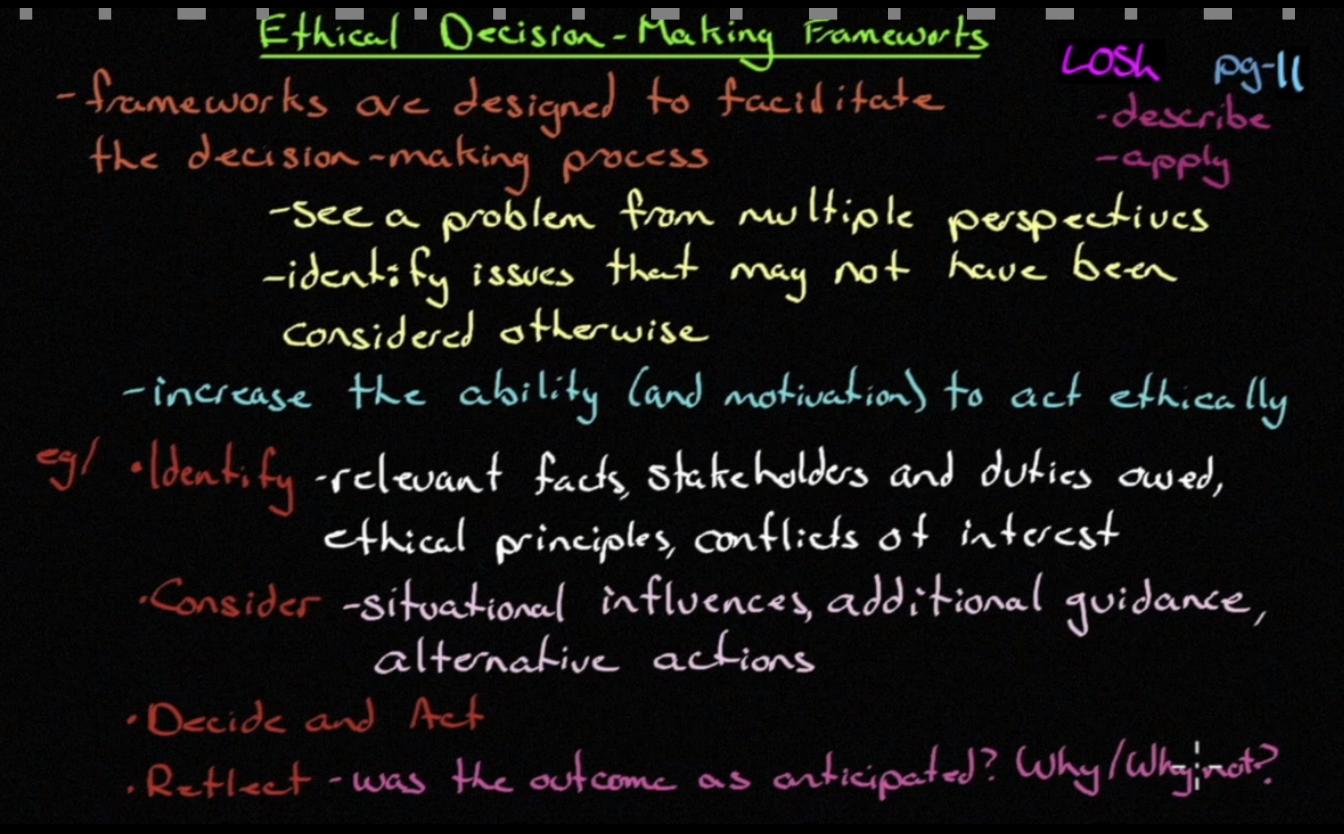 Ethical Decision-Making Frameworks
LOSh pg-11
-describe
-apply
-frameworks are designed to facilitate
the decision-making process
-see a problem from multiple perspectives
-identify issues that may not have been
considered otherwise
-increase the ability (and motivation) to act ethically
eg/ •Identify -relevant facts, stakeholders and duties owed,
ethical principles, conflicts of interest
•Consider -situational influences, additional guidance,
alternative actions
•Decide and Act
•Reflect -was the outcome as anticipated? Why/Why not?